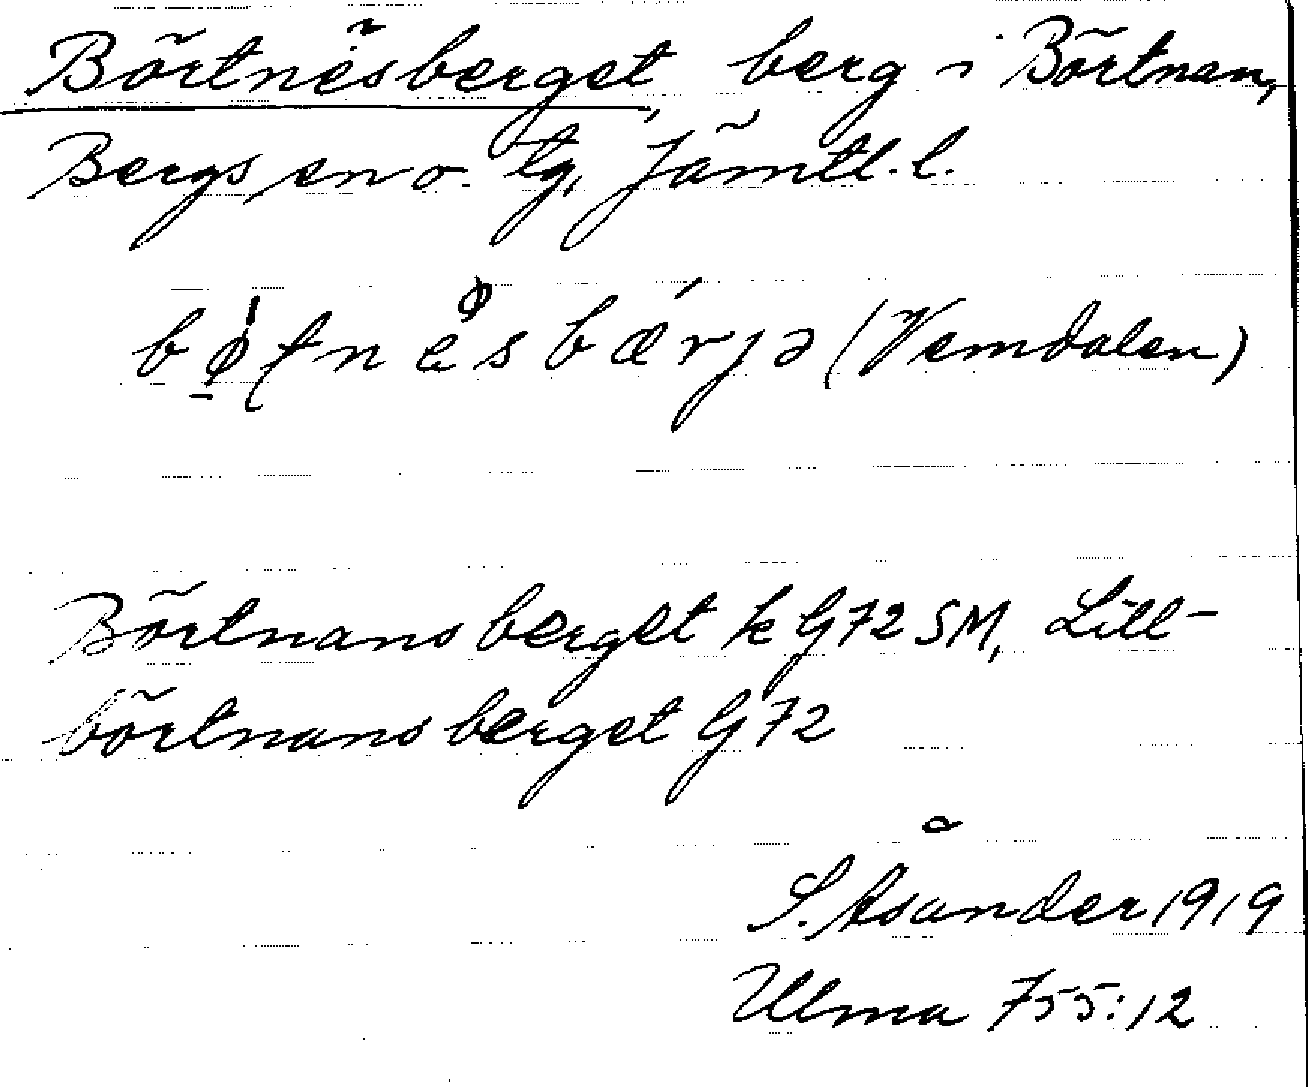 Börtnësberget, berg i Börtnan,
Bergs sn o. tg, Jämtl. l.
(Vemdalen)
Börtnansberget k G72 SM, Lill-
börtnansberget G72
S. Åsander 1919
Ulma 755:12